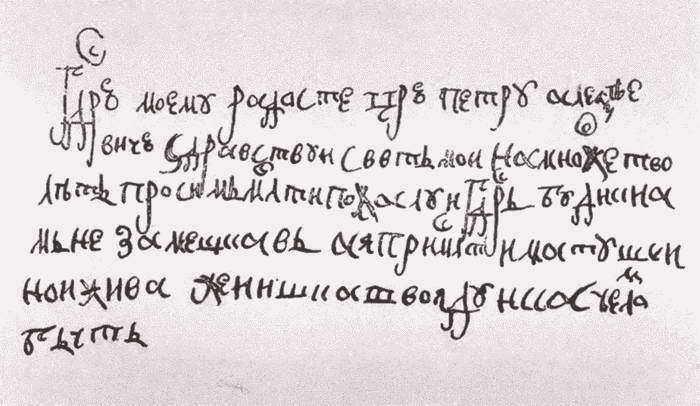 Гдрю моему радасте црю петру алеѯѣе
вичю Здравствуи светъ мои на множество
лѣтъ просим мълсти пожалуи гдрь буди к на
мъ не замешкавъ а я при млсти матушки
нои жива женишка твоя дунка челом
бьетъ